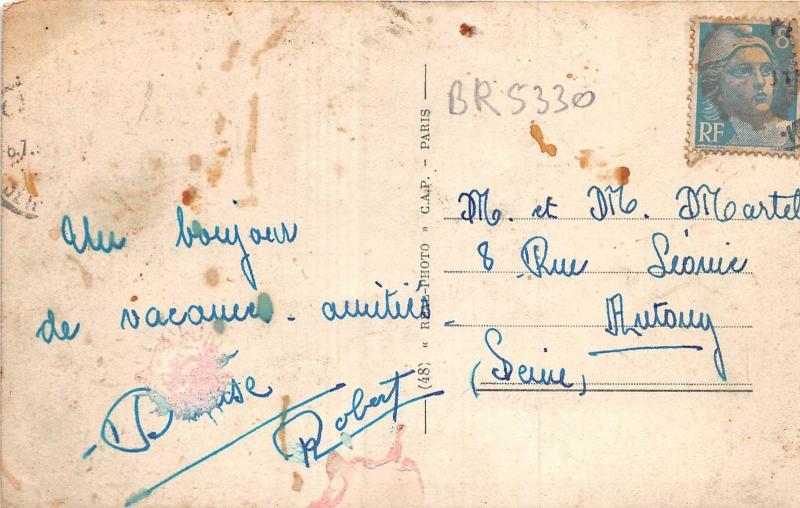 Un bonjour
de vacances. amitiés
Robert
(48) « REAL-PHOTO » C.A.P. - PARIS
BR5330
8
RF
M. et M. Martel
8 Rue Léonie
Antony
(Seine)